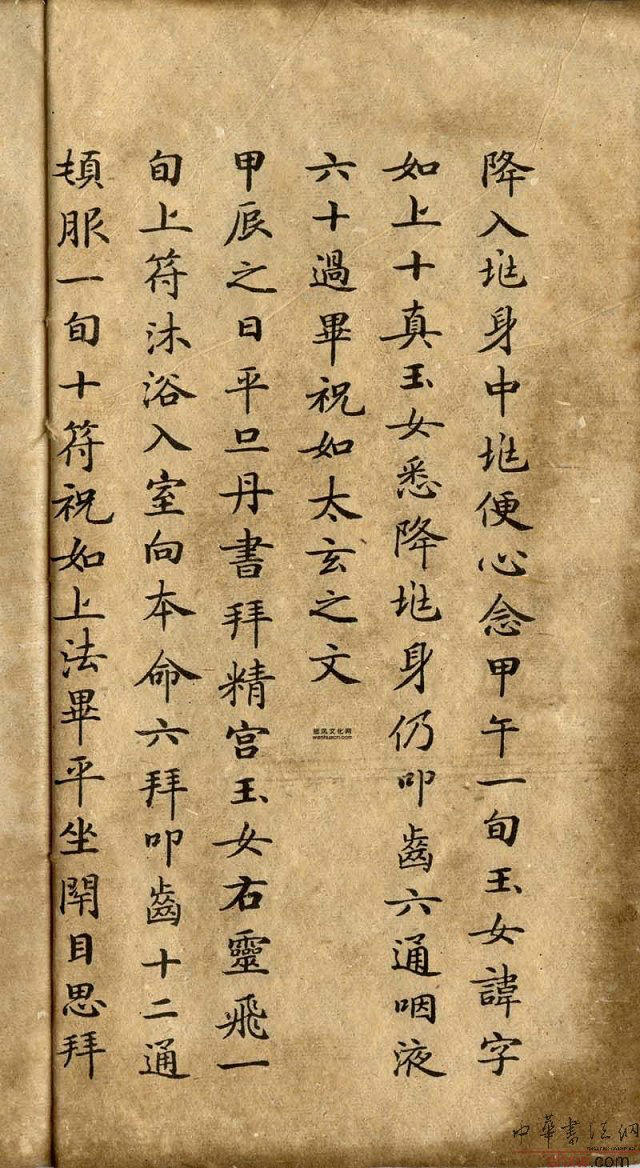 降入兆身中兆便心念甲午一旬玉女諱字
如上十真玉女悉降兆身仍叩齒六通咽液
六十過畢祝如太玄之文
甲辰之日平旦丹書拜精宮玉女右靈飛一
旬上符沐浴入室向本命六拜叩齒十二通
頓服一旬十符祝如上法畢平坐閇目思拜
中華書法網